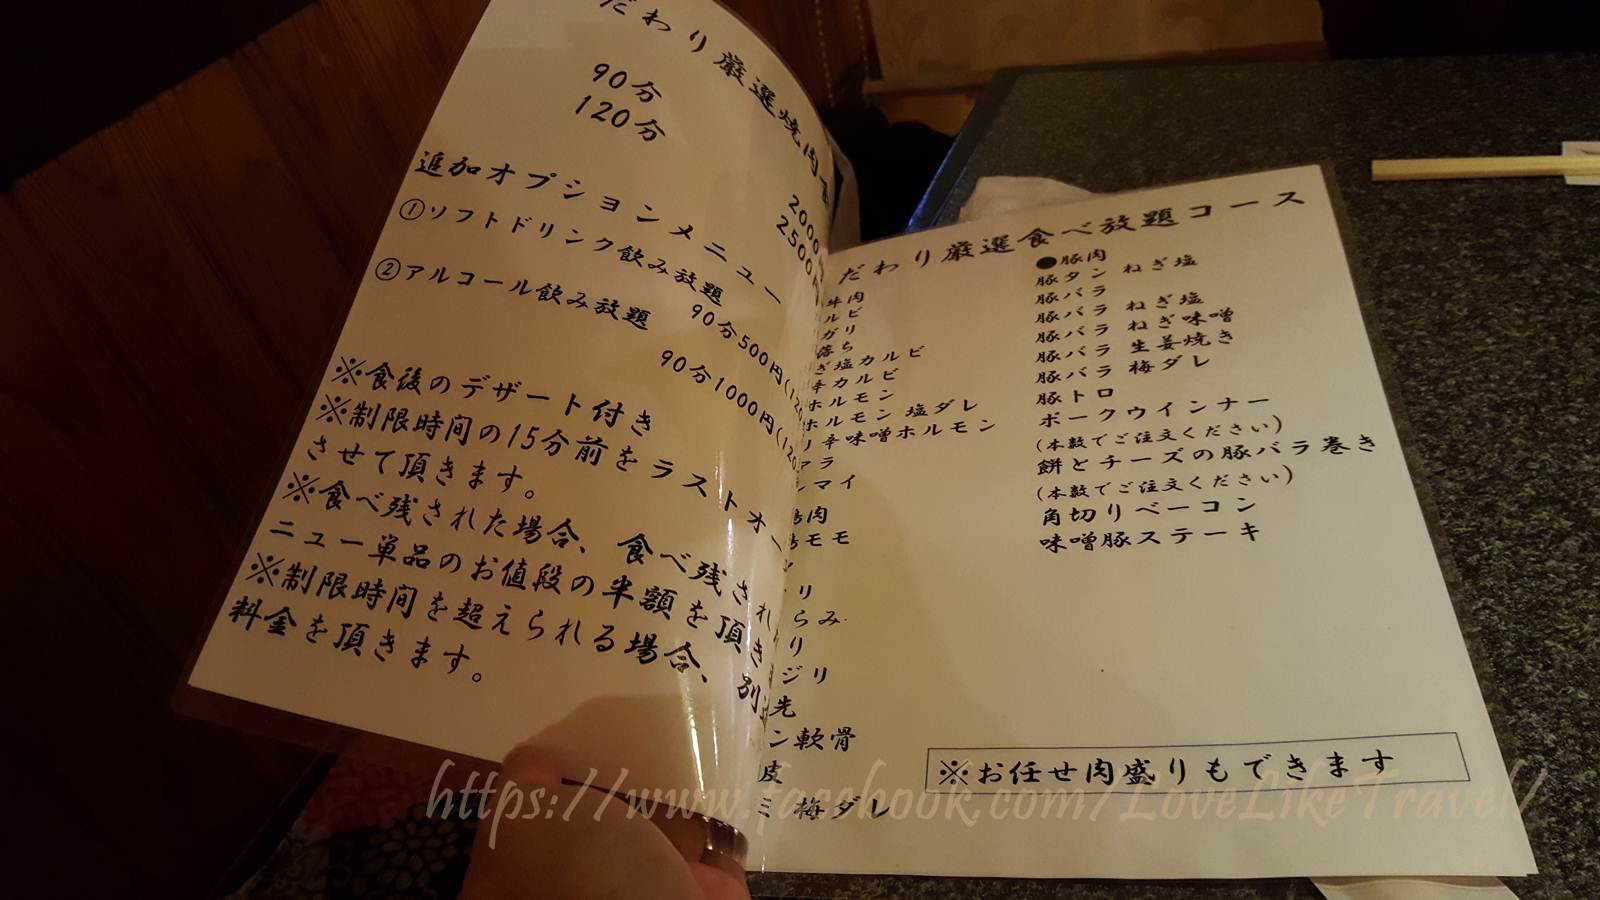 だわり厳選焼肉
90分 2000
120分 2500
追加オプションメニュー
①ソフトドリンク飲み放題
90分500円(120
②アルコール飲み放題
90分1000円(120
※食後のデザート付き
※制限時間の15分前をラストオー
させて頂きます。
※食べ残された場合、食べ残され
ニュー単品のお値段の半額を頂き
※制限時間を超えられる場合、別途
料金を頂きます。
だわり厳選食べ放題コース
牛肉
ルビ
ガリ
落ち
ぎ塩カルビ
辛カルビ
ホルモン
ホルモン 塩ダレ
リ辛味噌ホルモン
アラ
ンマイ
鶏肉
鶏モモ
リ
らみ
リ
ジリ
先
ン軟骨
皮
ミ 梅ダレ
●豚肉
豚タン ねぎ塩
豚バラ
豚バラ ねぎ塩
豚バラ ねぎ味噌
豚バラ 生姜焼き
豚バラ 梅ダレ
豚トロ
ポークウインナー
(本数でご注文ください)
餅とチーズの豚バラ巻き
(本数でご注文ください)
角切りベーコン
味噌豚ステーキ
※お任せ肉盛りもできます
https://www.facebook.com/LoveLikeTravel/